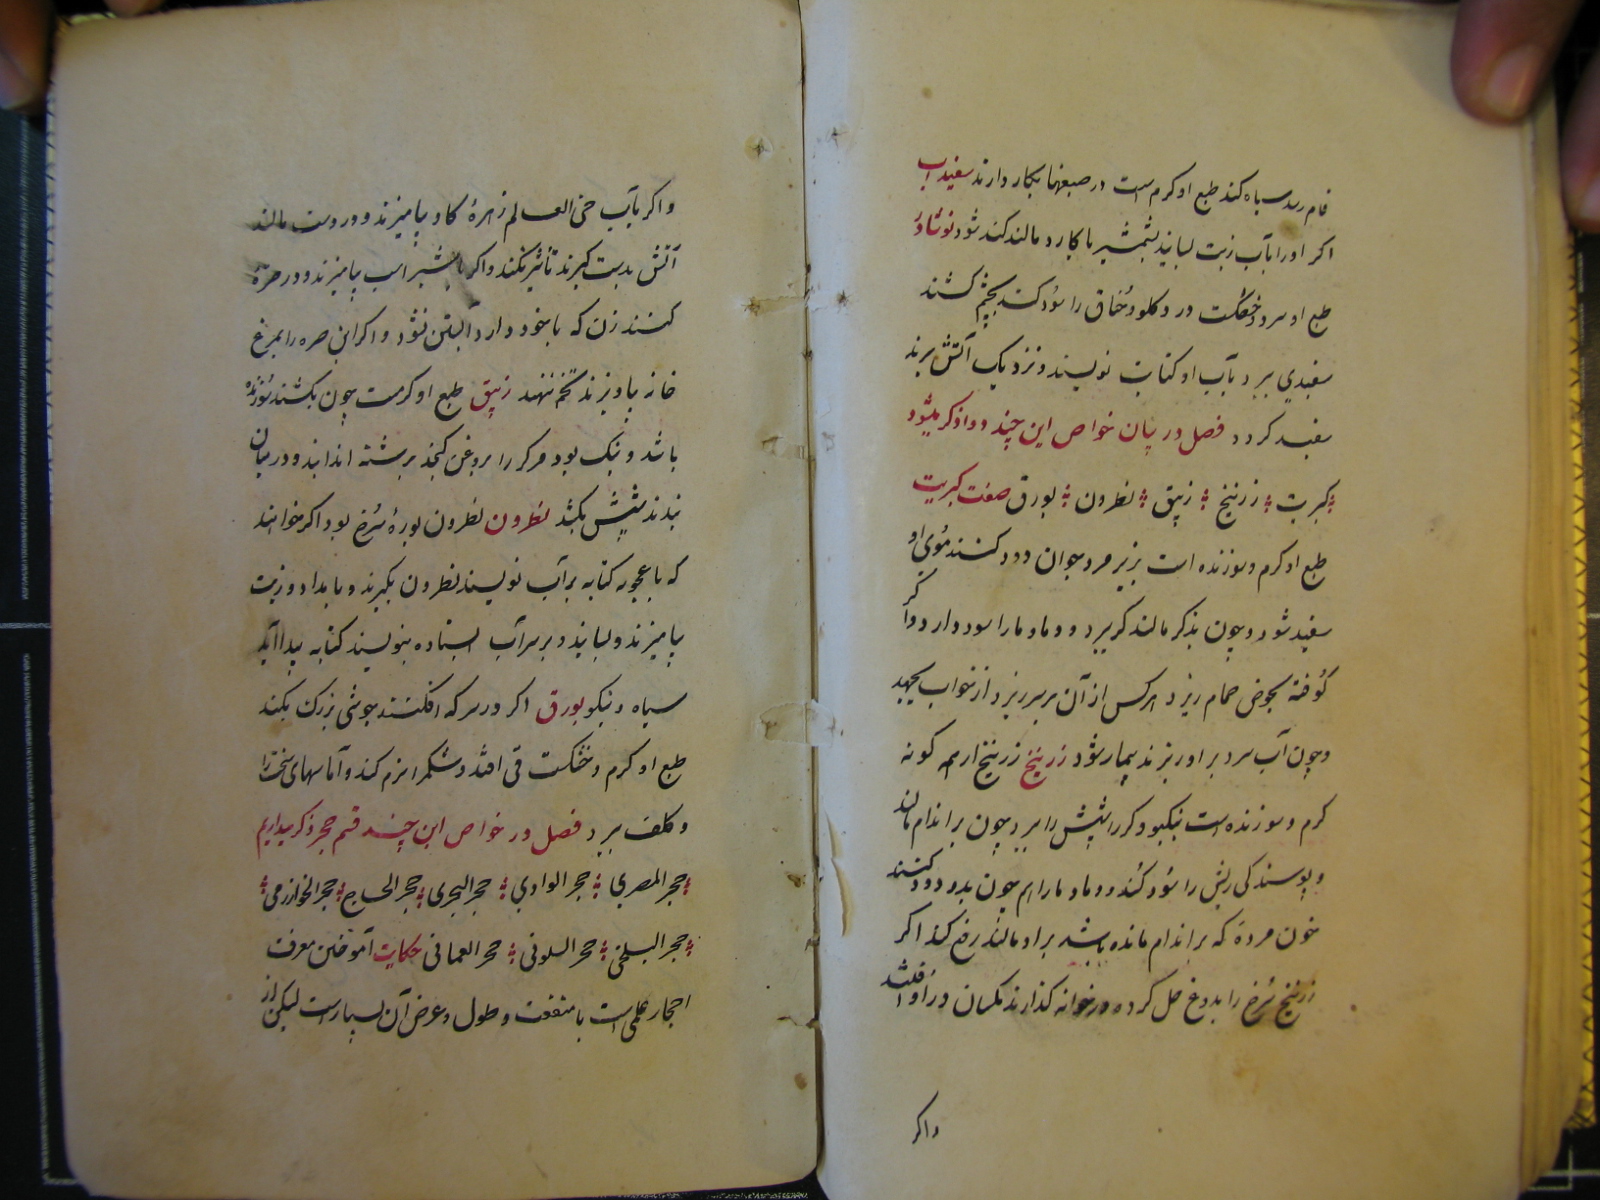 فام رسد سیاه کند طبع او کرم است در صبغها بکار دارند سفیداب
اکر او را بآب زیت بسایند بشمشیر با کارد مالند کند شود نوشادر
طبع او سرد و خشکست درد کلو و خناق را سود کند بچشم کشند
سفیدی ببرد بآب او کتابت نویسند و نزدیک آتش برند
سفید کردد فصل در بیان خواص این چند دوا ذکر میشود
کبریت زرنیخ زیبق نطرون بورق صفت کبریت
طبع او کرم و سوزنده است بزیر مرد جوان دود کنند موی او
سفید شود و چون بذکر مالند کر ببرد و دماد ما را سود دارد و اکر
کوفته بحوض حمام ریزد هرکس از آن بر سر ریزد از خواب بجهد
و چون آب سرد بر او ریزند بیمار شود زرنیخ زرنیخ از همه کونه
کرم و سوزنده است نیکبود کر را شپش را ببرد چون بر اندام مالند
و پوسندکی ریش را سود کند و دماد ما را هم چون بدو دود کنند
خون مرده که بر اندام مانده باشد بر او مالند رفع کند اکر
زرنیخ سرخ را بدوغ حل کرده در خانه کذارند مکسان در او افتند
واکر
و اکر بآب حی العالم زهرهٔ کاو بیامیزند و در دست مالند
آتش بدست کیرند تأثیر نکند و اکر با شیر اسب بیامیزند و در صرهٔ
کنند زن که با خود دارد آبستن نشود و اکر این صره را بمرغ
خانه بیاویزند تخم ننهد زیبق طبع او کرمست چون بکشند سوزنده
باشد و نیک بود مر کر را بروغن کنجد برشته اندایند و در میان
بندند شپش بکشد نطرون نطرون بورهٔ سرخ بود اکر خواهند
که با عجوبه کتابه بر آب نویسند نطرون بکیرند و با مداد و زیت
بیامیزند و بسایند و بر سر آب ایستاده بنویسند کتابه پیدا آید
سیاه و نیکو بورق اکر در سرکه افکنند جوشی بزرک بکند
طبع او کرم و خشکست قی افتد و شکم را نرم کند و آماسهای سخت را
و کلف ببرد فصل در خواص این چند قسم حجر ذکر میداریم
حجر المصری حجر الوادی حجر البحری حجر الحاج حجر الخوازرمی
حجر البلخی حجر السلونی حجر العمانی حکایت آموختن معرفت
احجار علمی است با منفعت و طول و عرض آن بسیار است لیکن از